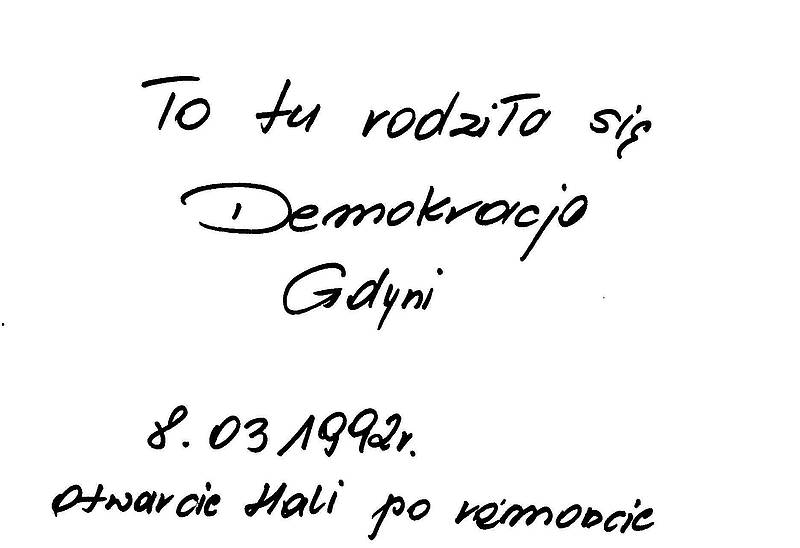 To tu rodziła się
Demokracja
Gdyni
8. 03 1992r.
Otwarcie Hali po remoncie